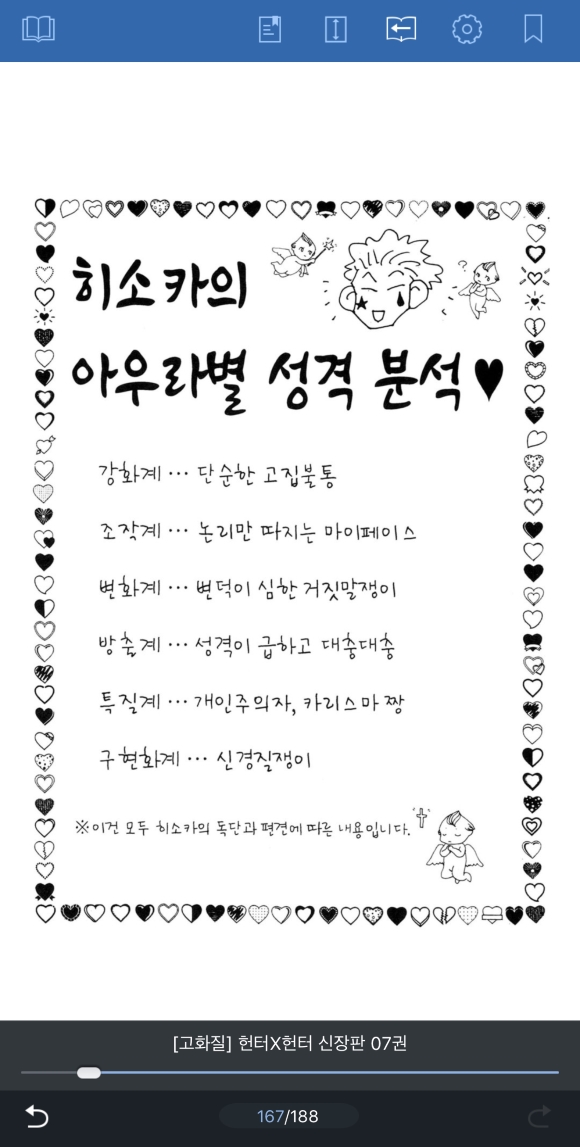 히소카의
?
아우라별 성격 분석♥
강화계 … 단순한 고집불통
조작계 … 논리만 따지는 마이페이스
변화계 … 변덕이 심한 거짓말쟁이
방출계 … 성격이 급하고 대충대충
특질계 … 개인주의자, 카리스마 짱
구현화계 … 신경질쟁이
※이건 모두 히소카의 독단과 편견에 따른 내용입니다.
[고화질] 헌터X헌터 신장판 07권
167/188